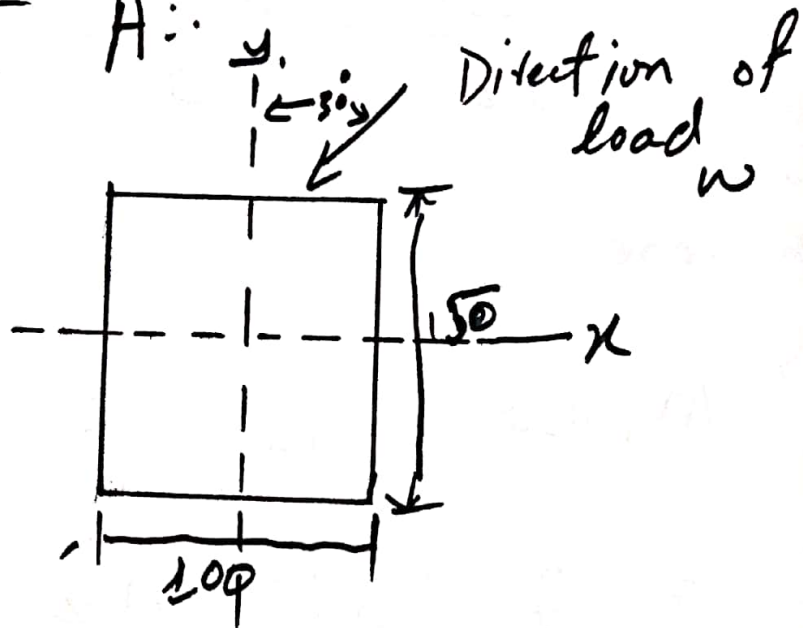 A:.
y.
30°
Direction of
load
w
150
x
100